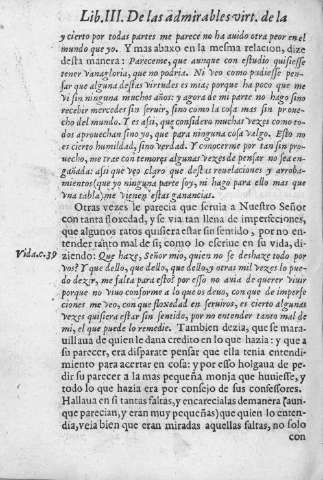 Lib. III. De las admirables virt. de la
y cierto por todas partes me parece no ha auido otra peor en el
mundo que yo. Y mas abaxo en la mesma relacion, dize
desta manera: Pareceme, que aunque con estudio quisiesse
tener vanagloria, que no podria. Ni veo como pudiesse pen-
sar que alguna destas virtudes es mia; porque ha poco que me
vi sin ninguna muchos años: y agora de mi parte no hago sino
recebir mercedes sin seruir, sino como la cosa mas sin proue-
cho del mundo. Y es assi, que considero muchas vezes como to-
dos aprouechan sino yo, que para ninguna cosa valgo. Esto no
es cierto humildad, sino verdad. Y conocerme por tan sin pro-
uecho, me trae con temores algunas vezes de pensar no sea en-
gañada: assi que veo claro que destas reuelaciones y arroba-
mientos (que yo ninguna parte soy, ni hago para ello mas que
vna tabla) me vienen estas ganancias.
Otras vezes le parecia que seruia a Nuestro Señor
con tanta floxedad, y se via tan llena de imperfecciones,
que algunos ratos quisiera estar sin sentido, por no en-
tender tanto mal de si; como lo escriue en su vida, di-
Vida.c.39 ziendo: Que haze, Señor mio, quien no se deshaze todo por
vos? Y que dello, que dello, que dello, y otras mil vezes lo pue-
do dezir, me falta para esto! por esso no auia de querer viuir
porque no viuo conforme a lo que os deuo, con que de imperfe-
ciones me veo, con que floxedad en seruiros, es cierto algunas
vezes quisiera estar sin sentido, por no entender tanto mal de
mi, el que puede lo remedie. Tambien dezia, que se mara-
uillaua de quien le daua credito en lo que hazia: y que a
su parecer, era disparate pensar que ella tenia entendi-
miento para acertar en cosa: y por esso holgaua de pe-
dir su parecer a la mas pequeña monja que huuiesse, y
todo lo que hazia era por consejo de sus confessores.
Hallaua en si tantas faltas, y encarecialas demanera (aun-
que parecian, y eran muy pequeñas) que quien lo enten-
dia, veia bien que eran miradas aquellas faltas, no solo
con